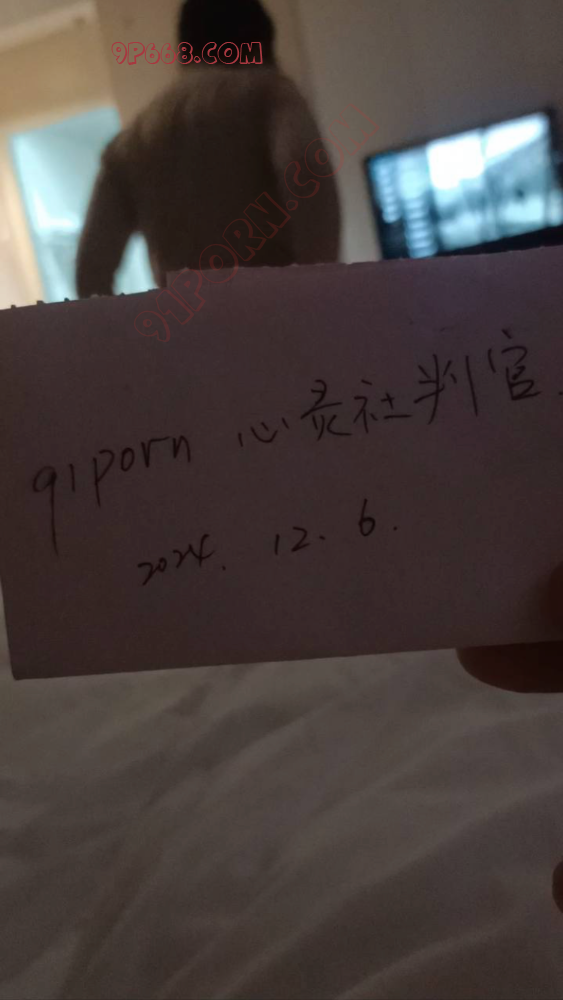 9P668.COM
91PORN.COM
91porn 心灵社判官.
2024. 12. 6.